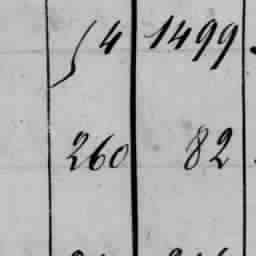 4 1499
260 82